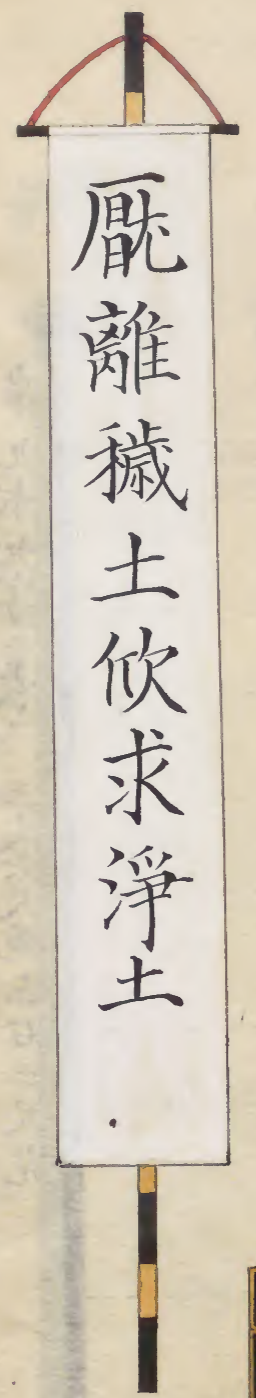 厭離穢土欣求淨土